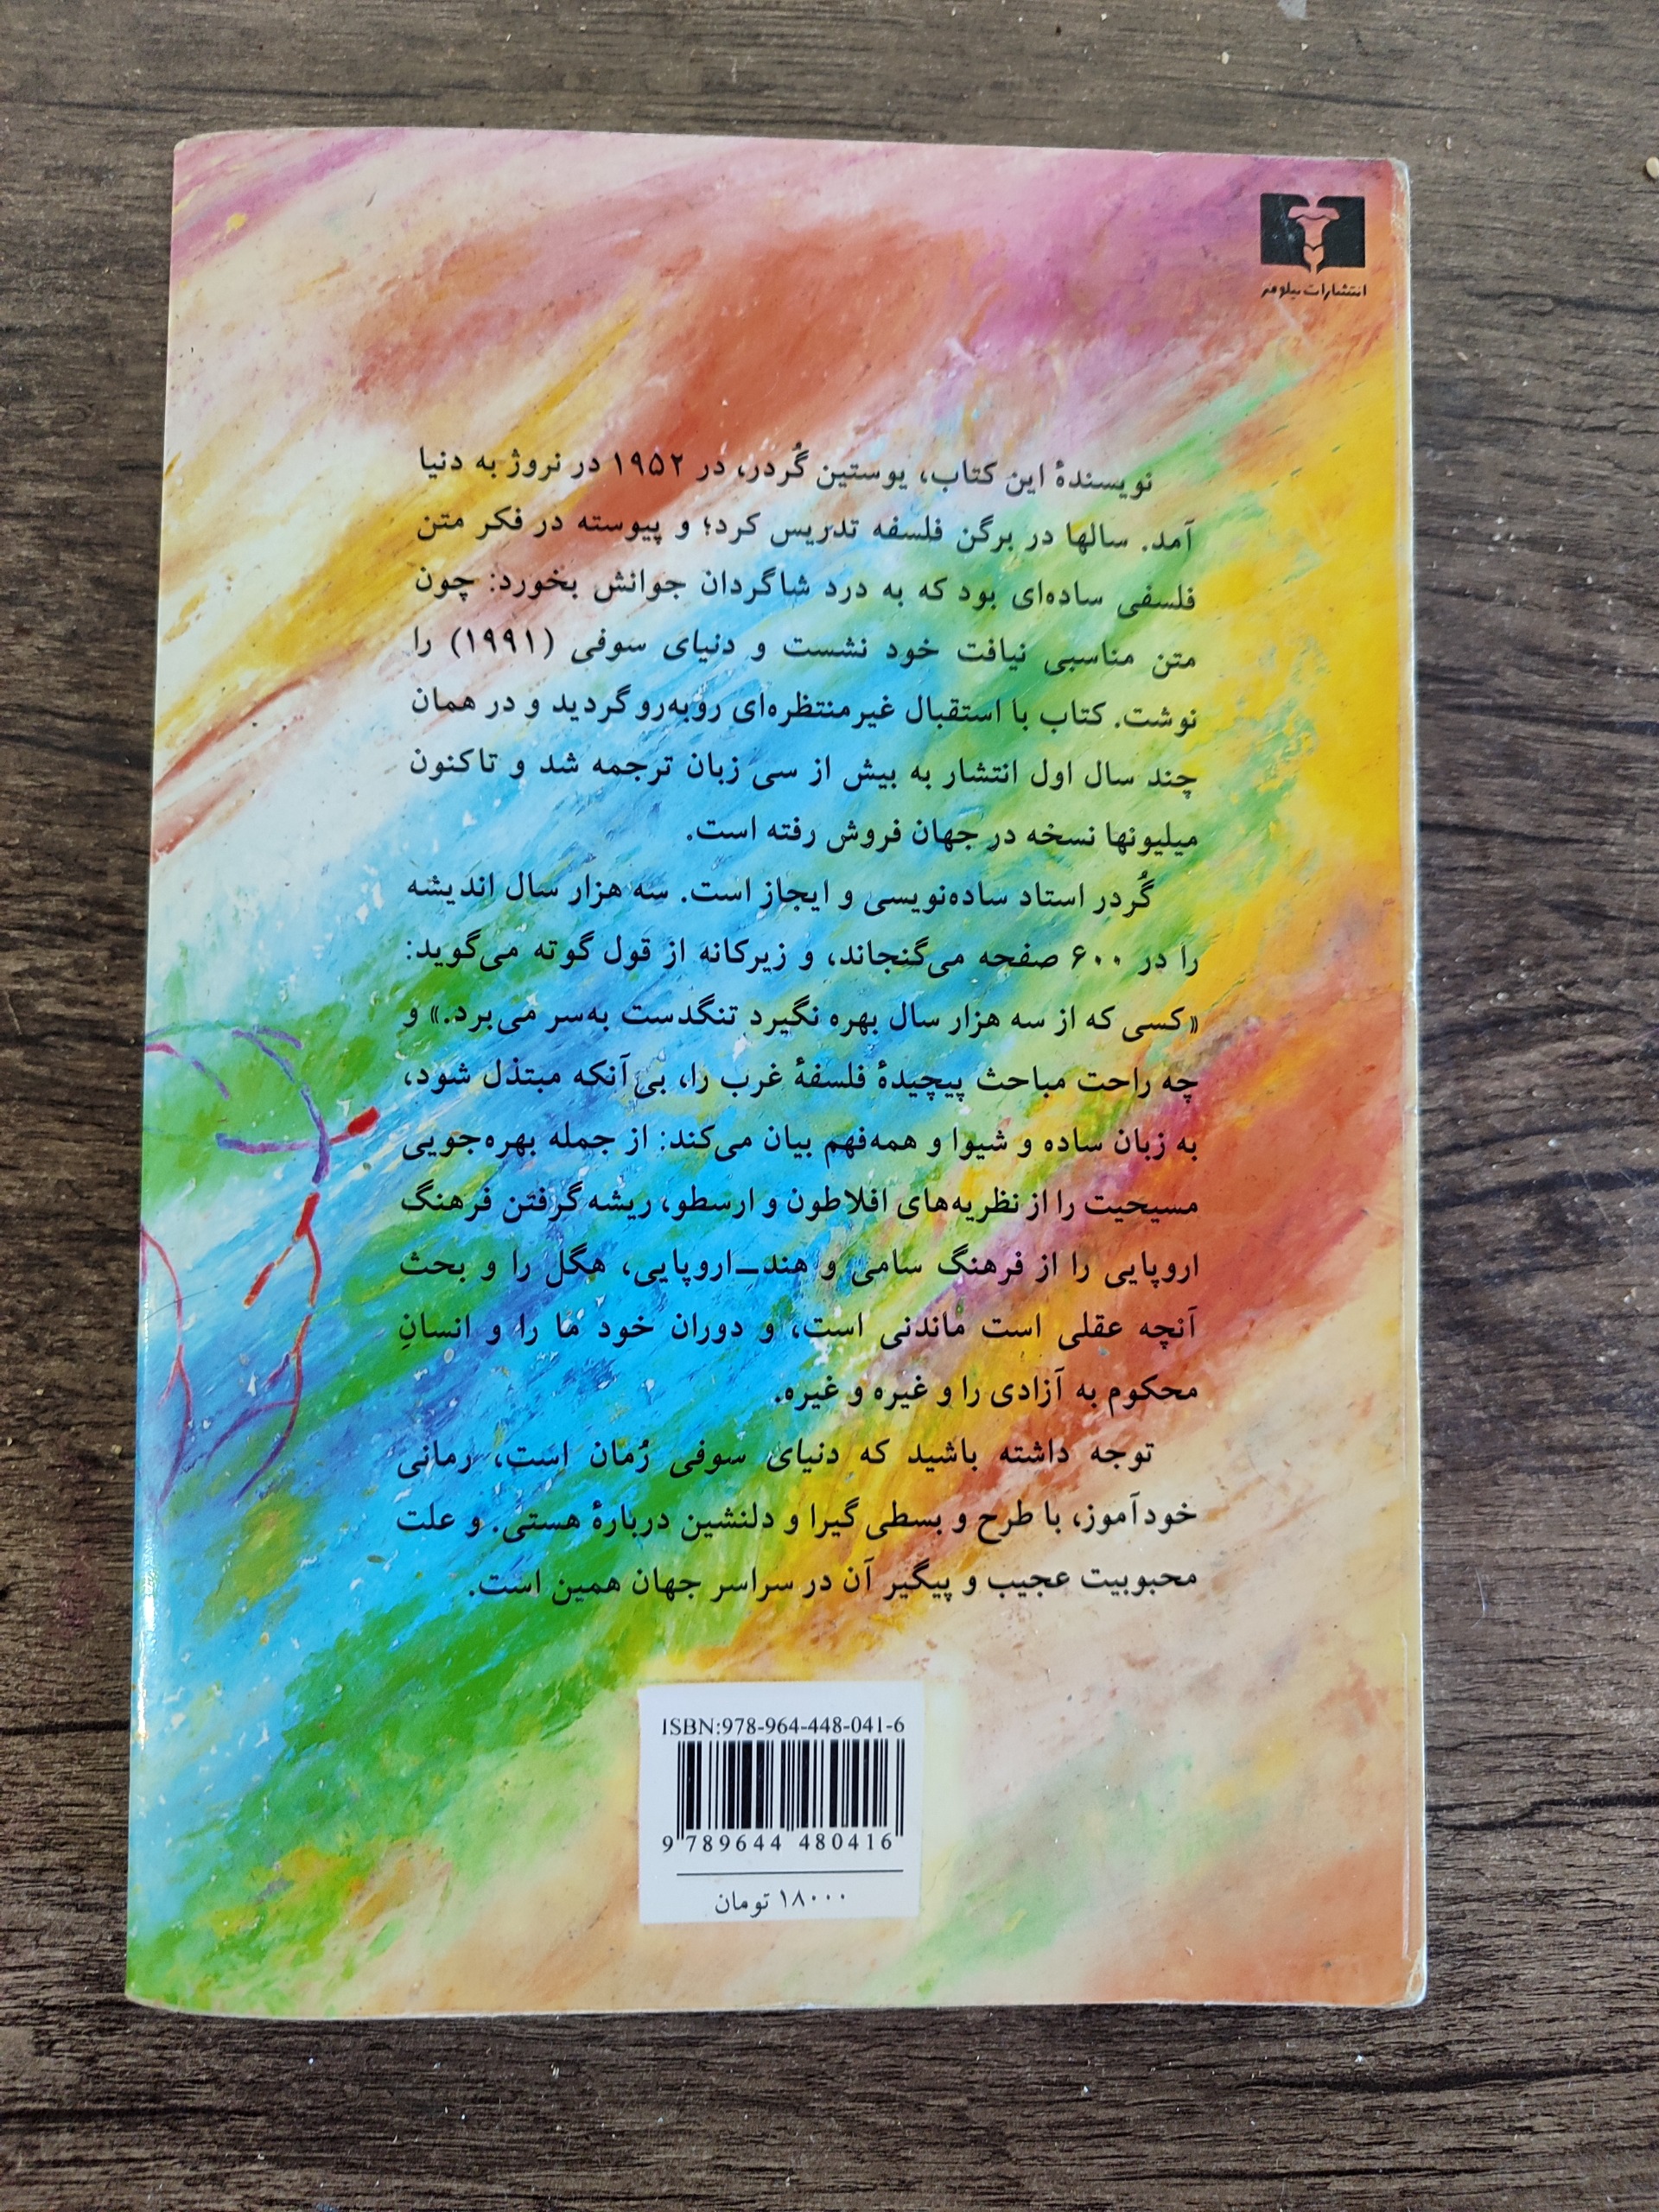 انتشارات نیلوفر
نویسندهٔ این کتاب، یوستین گُردر، در ۱۹۵۲ در نروژ به دنیا
آمد. سالها در برگن فلسفه تدریس کرد؛ و پیوسته در فکر متن
فلسفی ساده‌ای بود که به درد شاگردان جوانش بخورد: چون
متن مناسبی نیافت خود نشست و دنیای سوفی (۱۹۹۱) را
نوشت. کتاب با استقبال غیرمنتظره‌ای روبه‌رو گردید و در همان
چند سال اول انتشار به بیش از سی زبان ترجمه شد و تاکنون
میلیونها نسخه در جهان فروش رفته است.
گُردر استاد ساده‌نویسی و ایجاز است. سه هزار سال اندیشه
را در ۶۰۰ صفحه می‌گنجاند، و زیرکانه از قول گوته می‌گوید:
«کسی که از سه هزار سال بهره نگیرد تنگدست به‌سر می‌برد.» و
چه راحت مباحث پیچیدهٔ فلسفهٔ غرب را، بی‌آنکه مبتذل شود،
به زبان ساده و شیوا و همه‌فهم بیان می‌کند: از جمله بهره‌جویی
مسیحیت را از نظریه‌های افلاطون و ارسطو، ریشه گرفتن فرهنگ
اروپایی را از فرهنگ سامی و هند‌ـ‌اروپایی، هگل را و بحث
آنچه عقلی است ماندنی است، و دوران خود ما را و انسانِ
محکوم به آزادی را و غیره و غیره.
توجه داشته باشید که دنیای سوفی رُمان است، رمانی
خودآموز، با طرح و بسطی گیرا و دلنشین دربارهٔ هستی. و علت
محبوبیت عجیب و پیگیر آن در سراسر جهان همین است.
ISBN:978-964-448-041-6
9 789644 480416
۱۸۰۰۰ تومان